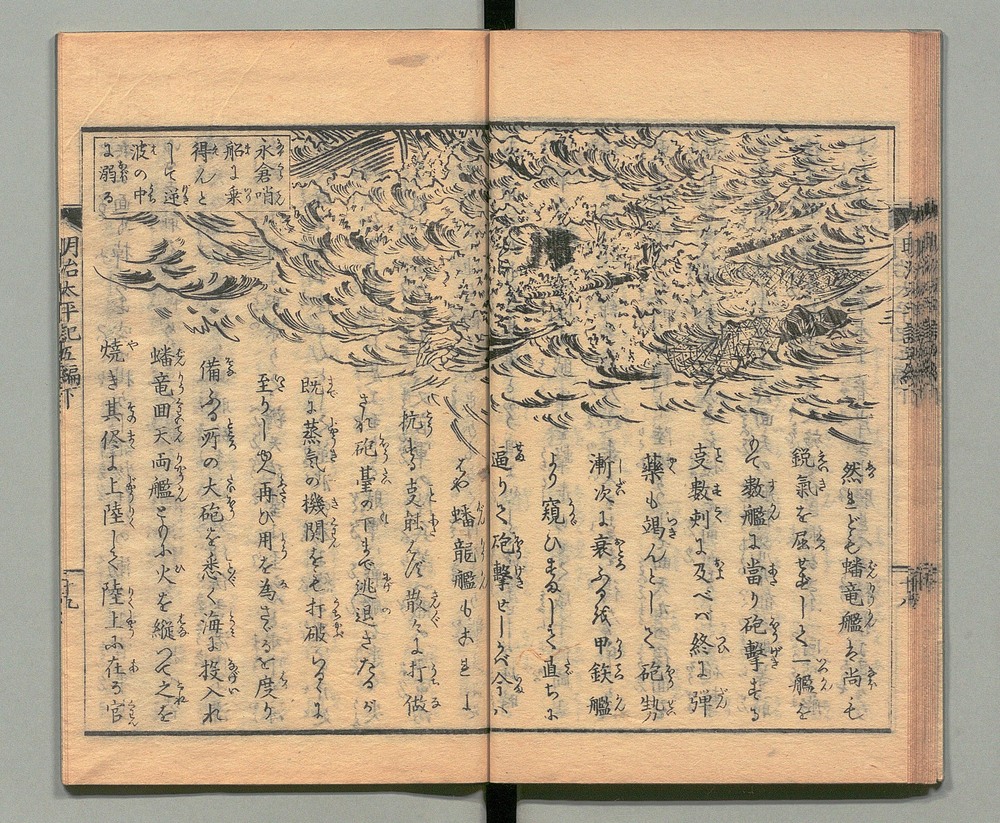 然れども蟠竜艦は尚も
鋭氣を屈せずして一艦を
以て數艦に當り砲撃する
支數刻に及べバ終に弾
藥も竭んとして砲勢
漸次に衰ふる我甲鉄艦
より窺ひすまして直ちに
逼りて砲撃せしかバ今ハ
はや蟠龍艦も
抗する支能ハず散々に打做
され砲臺の下まで逃退きたるが
既に蒸氣の機関をも打破らるゝに
至りしかバ再び用を為さゞるを度り
備ふる所の大砲を悉く海に投入れ
蟠竜回天両艦ともに火を縦つて之を
焼き其侭に上陸して陸上に在る官
永君哨
船に乗
得んと
して逆
波の中
に溺る
明治太平記五編下
十九